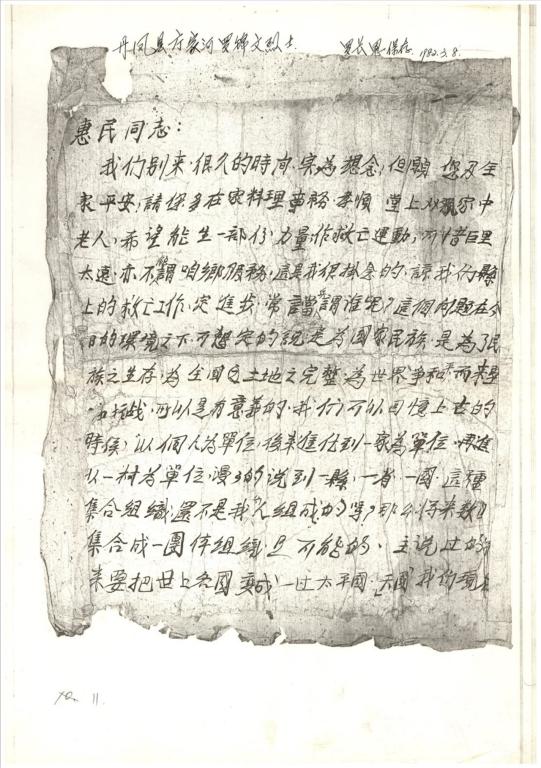 丹凤县 家河 锦文烈士 长 保存 1982.3.8.
惠民同志:
我们别来·很久的時间·宗為想念,但願 您及全
家平安,請您多在家料理事務·孝順 堂上双 家中
老人,希望能生一部份力量,作救亡運動,可惜 里
太遠·亦不 謂咱鄉服務,這是我很掛念的·諒我们縣
上的救亡工作·定進步·常言當 謂谁呢?這個问題在今
日的環境之下·不 定的說是為國家民族·是為了民
族之生存·為全国 土地之完整·為世界争和平而来
抗战·可以是有意義的·我们可以回憶上古的
時候,以個人為單位,後来進化到一家為單位·
以一村為單位,漫々的说到一縣,一省·一國·這種
集合組織·還不是我 人組成的嗎?那么将来数
集合成一團体組織是可能的· 说过的
来要把世上各國變成一 太平國·天國 我们
No. 11.